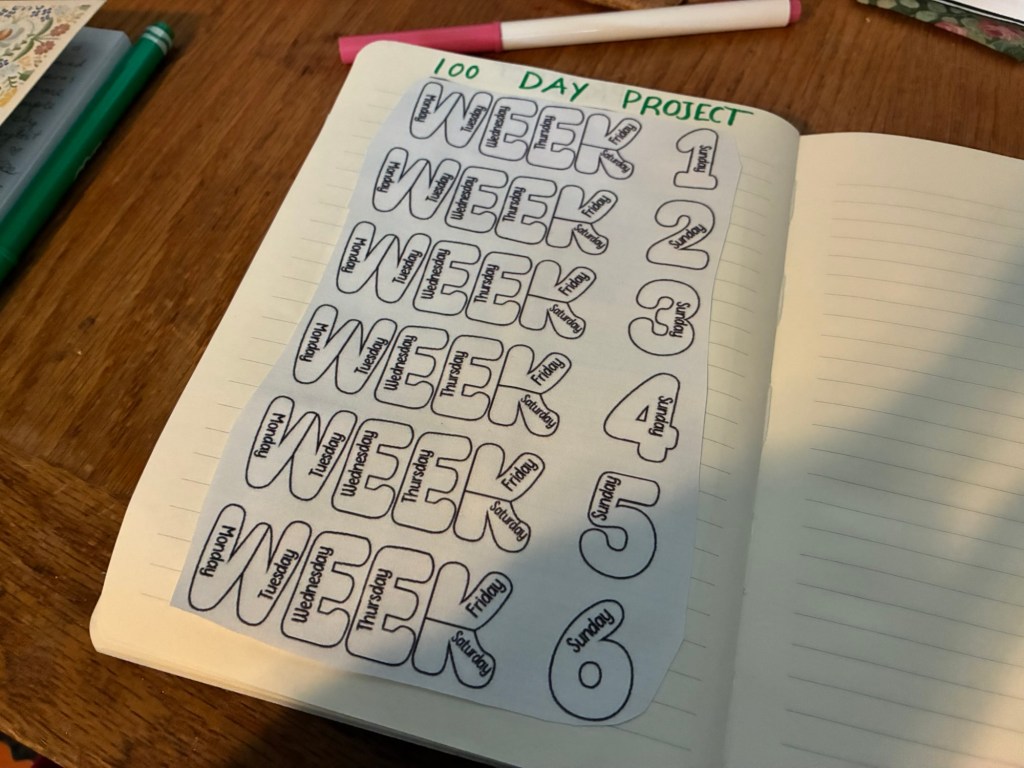 100 DAY PROJECT
WEEK 1
Monday Tuesday Wednesday Thursday Friday Saturday Sunday
WEEK 2
Monday Tuesday Wednesday Thursday Friday Saturday Sunday
WEEK 3
Monday Tuesday Wednesday Thursday Friday Saturday Sunday
WEEK 4
Monday Tuesday Wednesday Thursday Friday Saturday Sunday
WEEK 5
Monday Tuesday Wednesday Thursday Friday Saturday Sunday
WEEK 6
Monday Tuesday Wednesday Thursday Friday Saturday Sunday